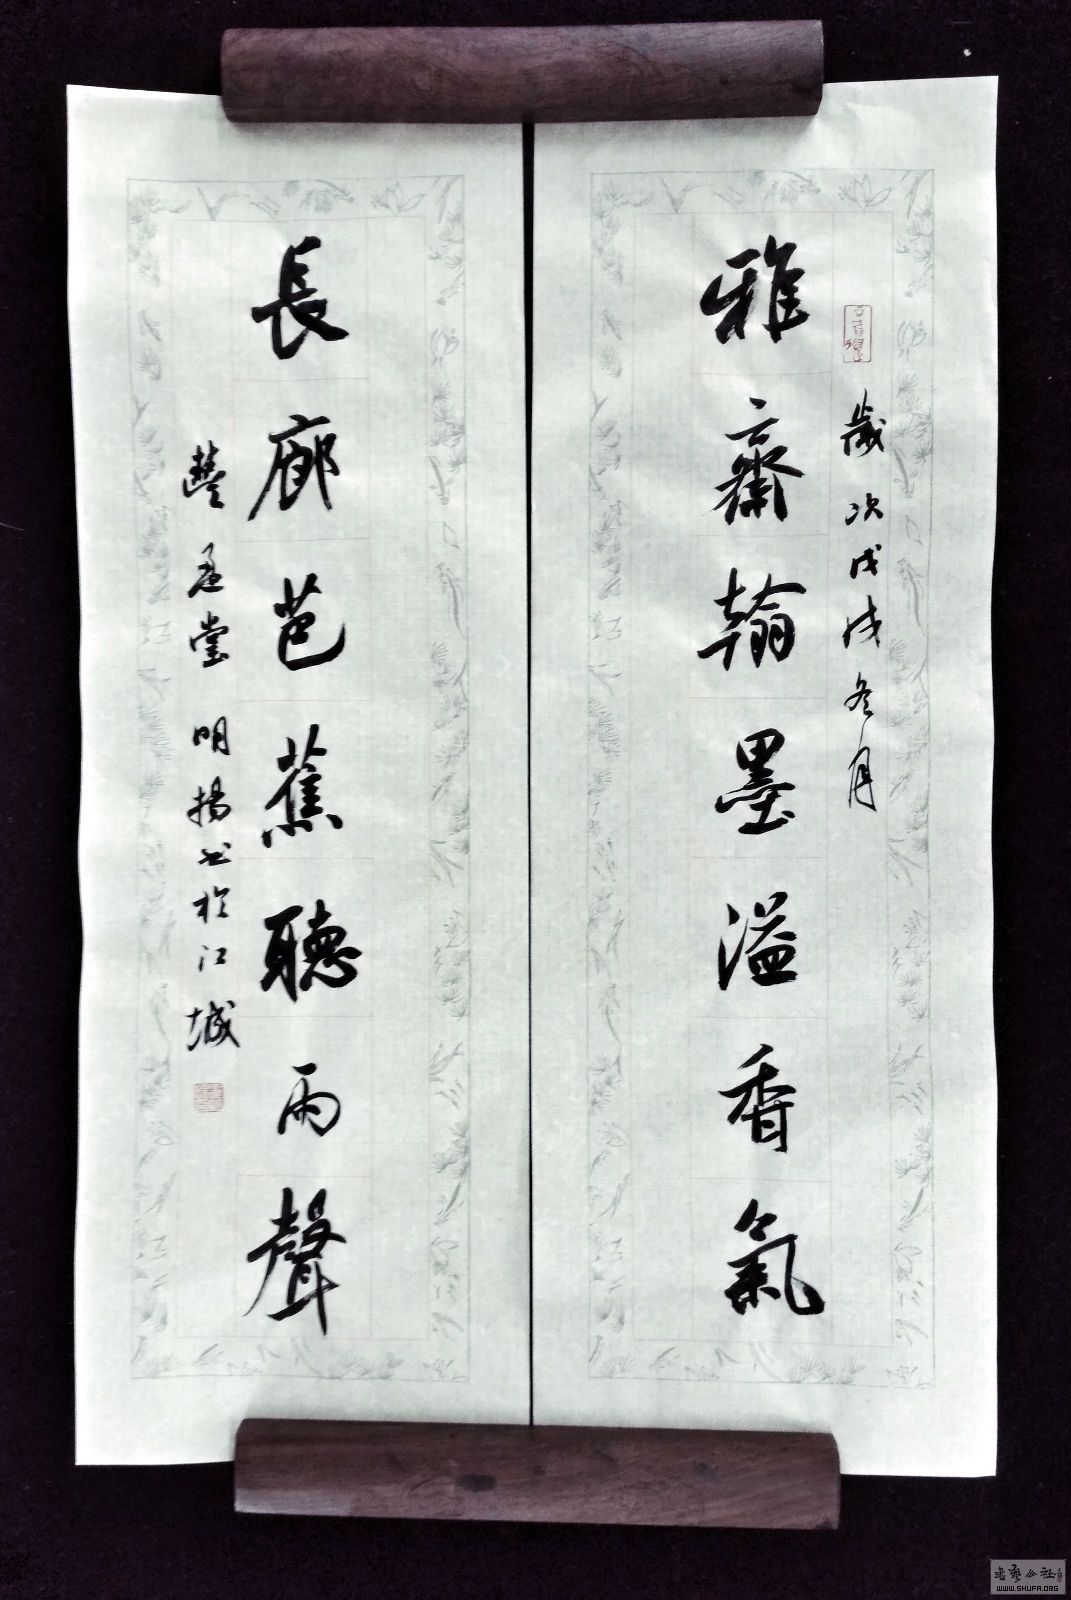 歲次戊戌冬月
雅齋翰墨溢香氣
長廊芭蕉聽雨聲
明揚书於江城
书艺公社
WWW.SHUFA.ORG